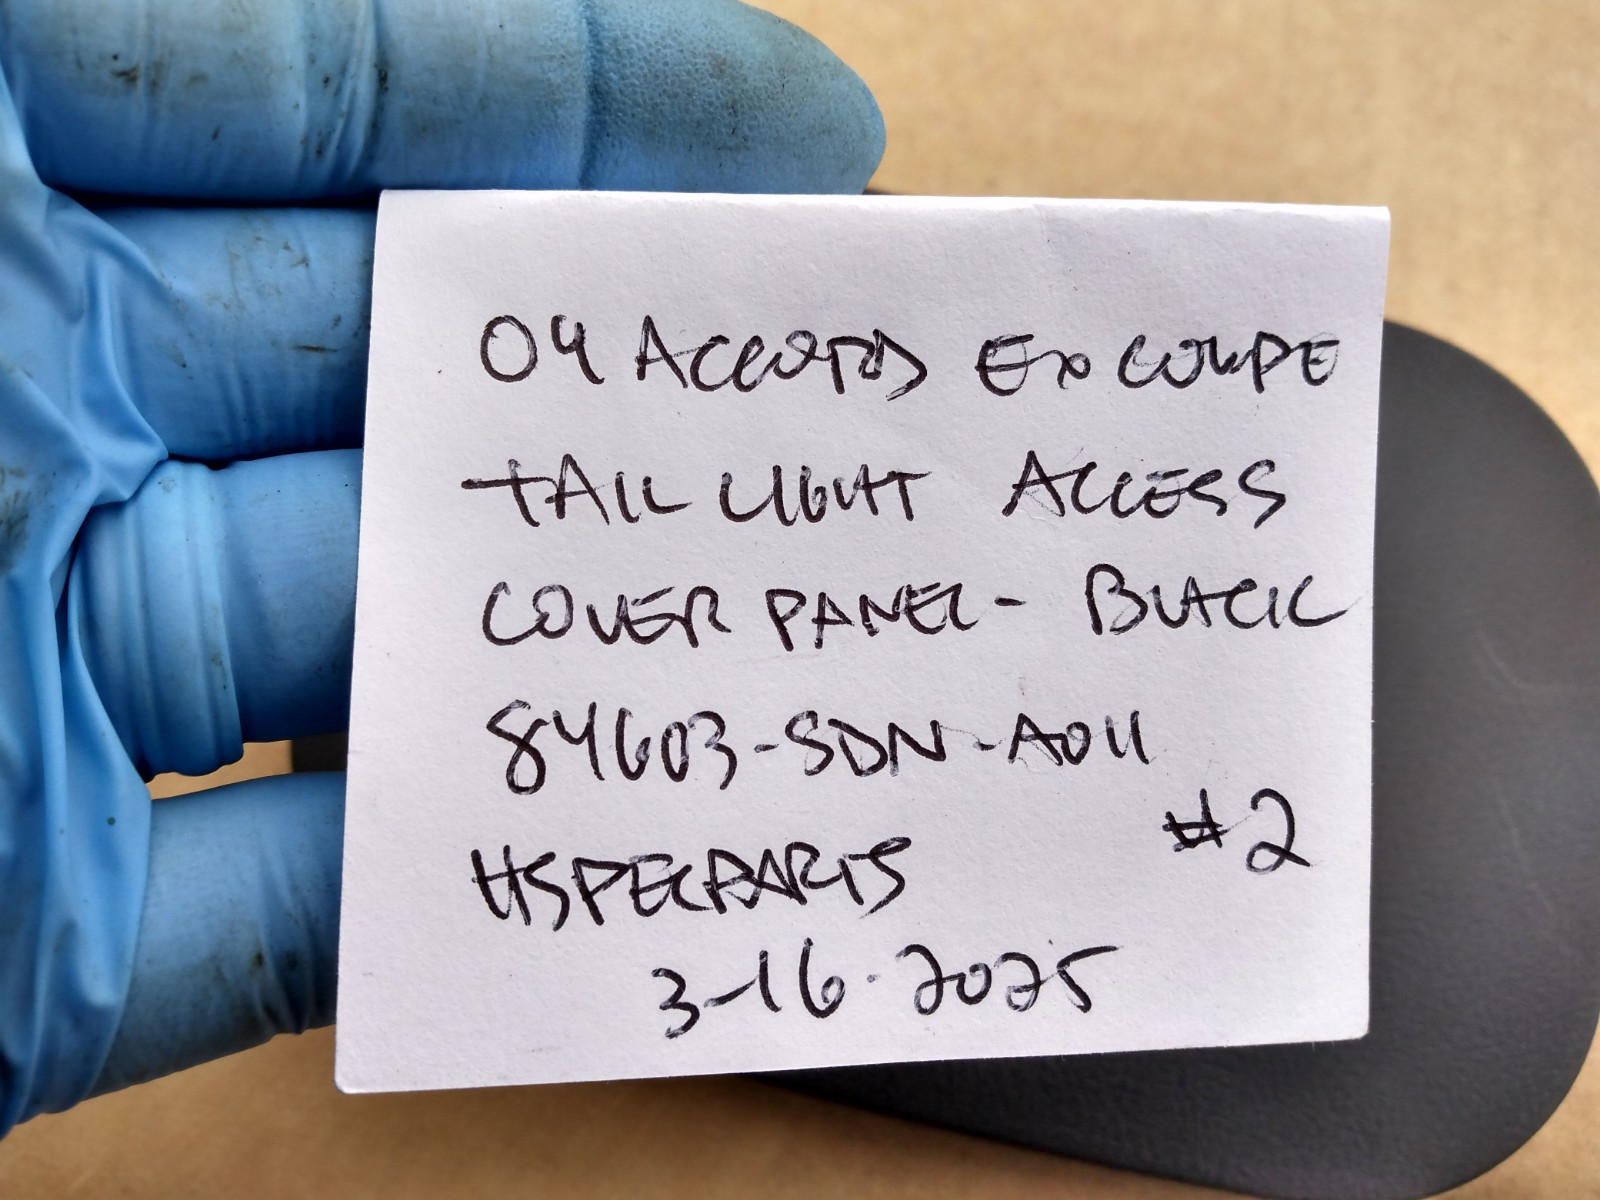 04 ACCORD EX COUPE
TAIL LIGHT ACCESS
COVER PANEL - BLACK
84603-SDN-A011
#2
HSPECPARTS
3-16-2025